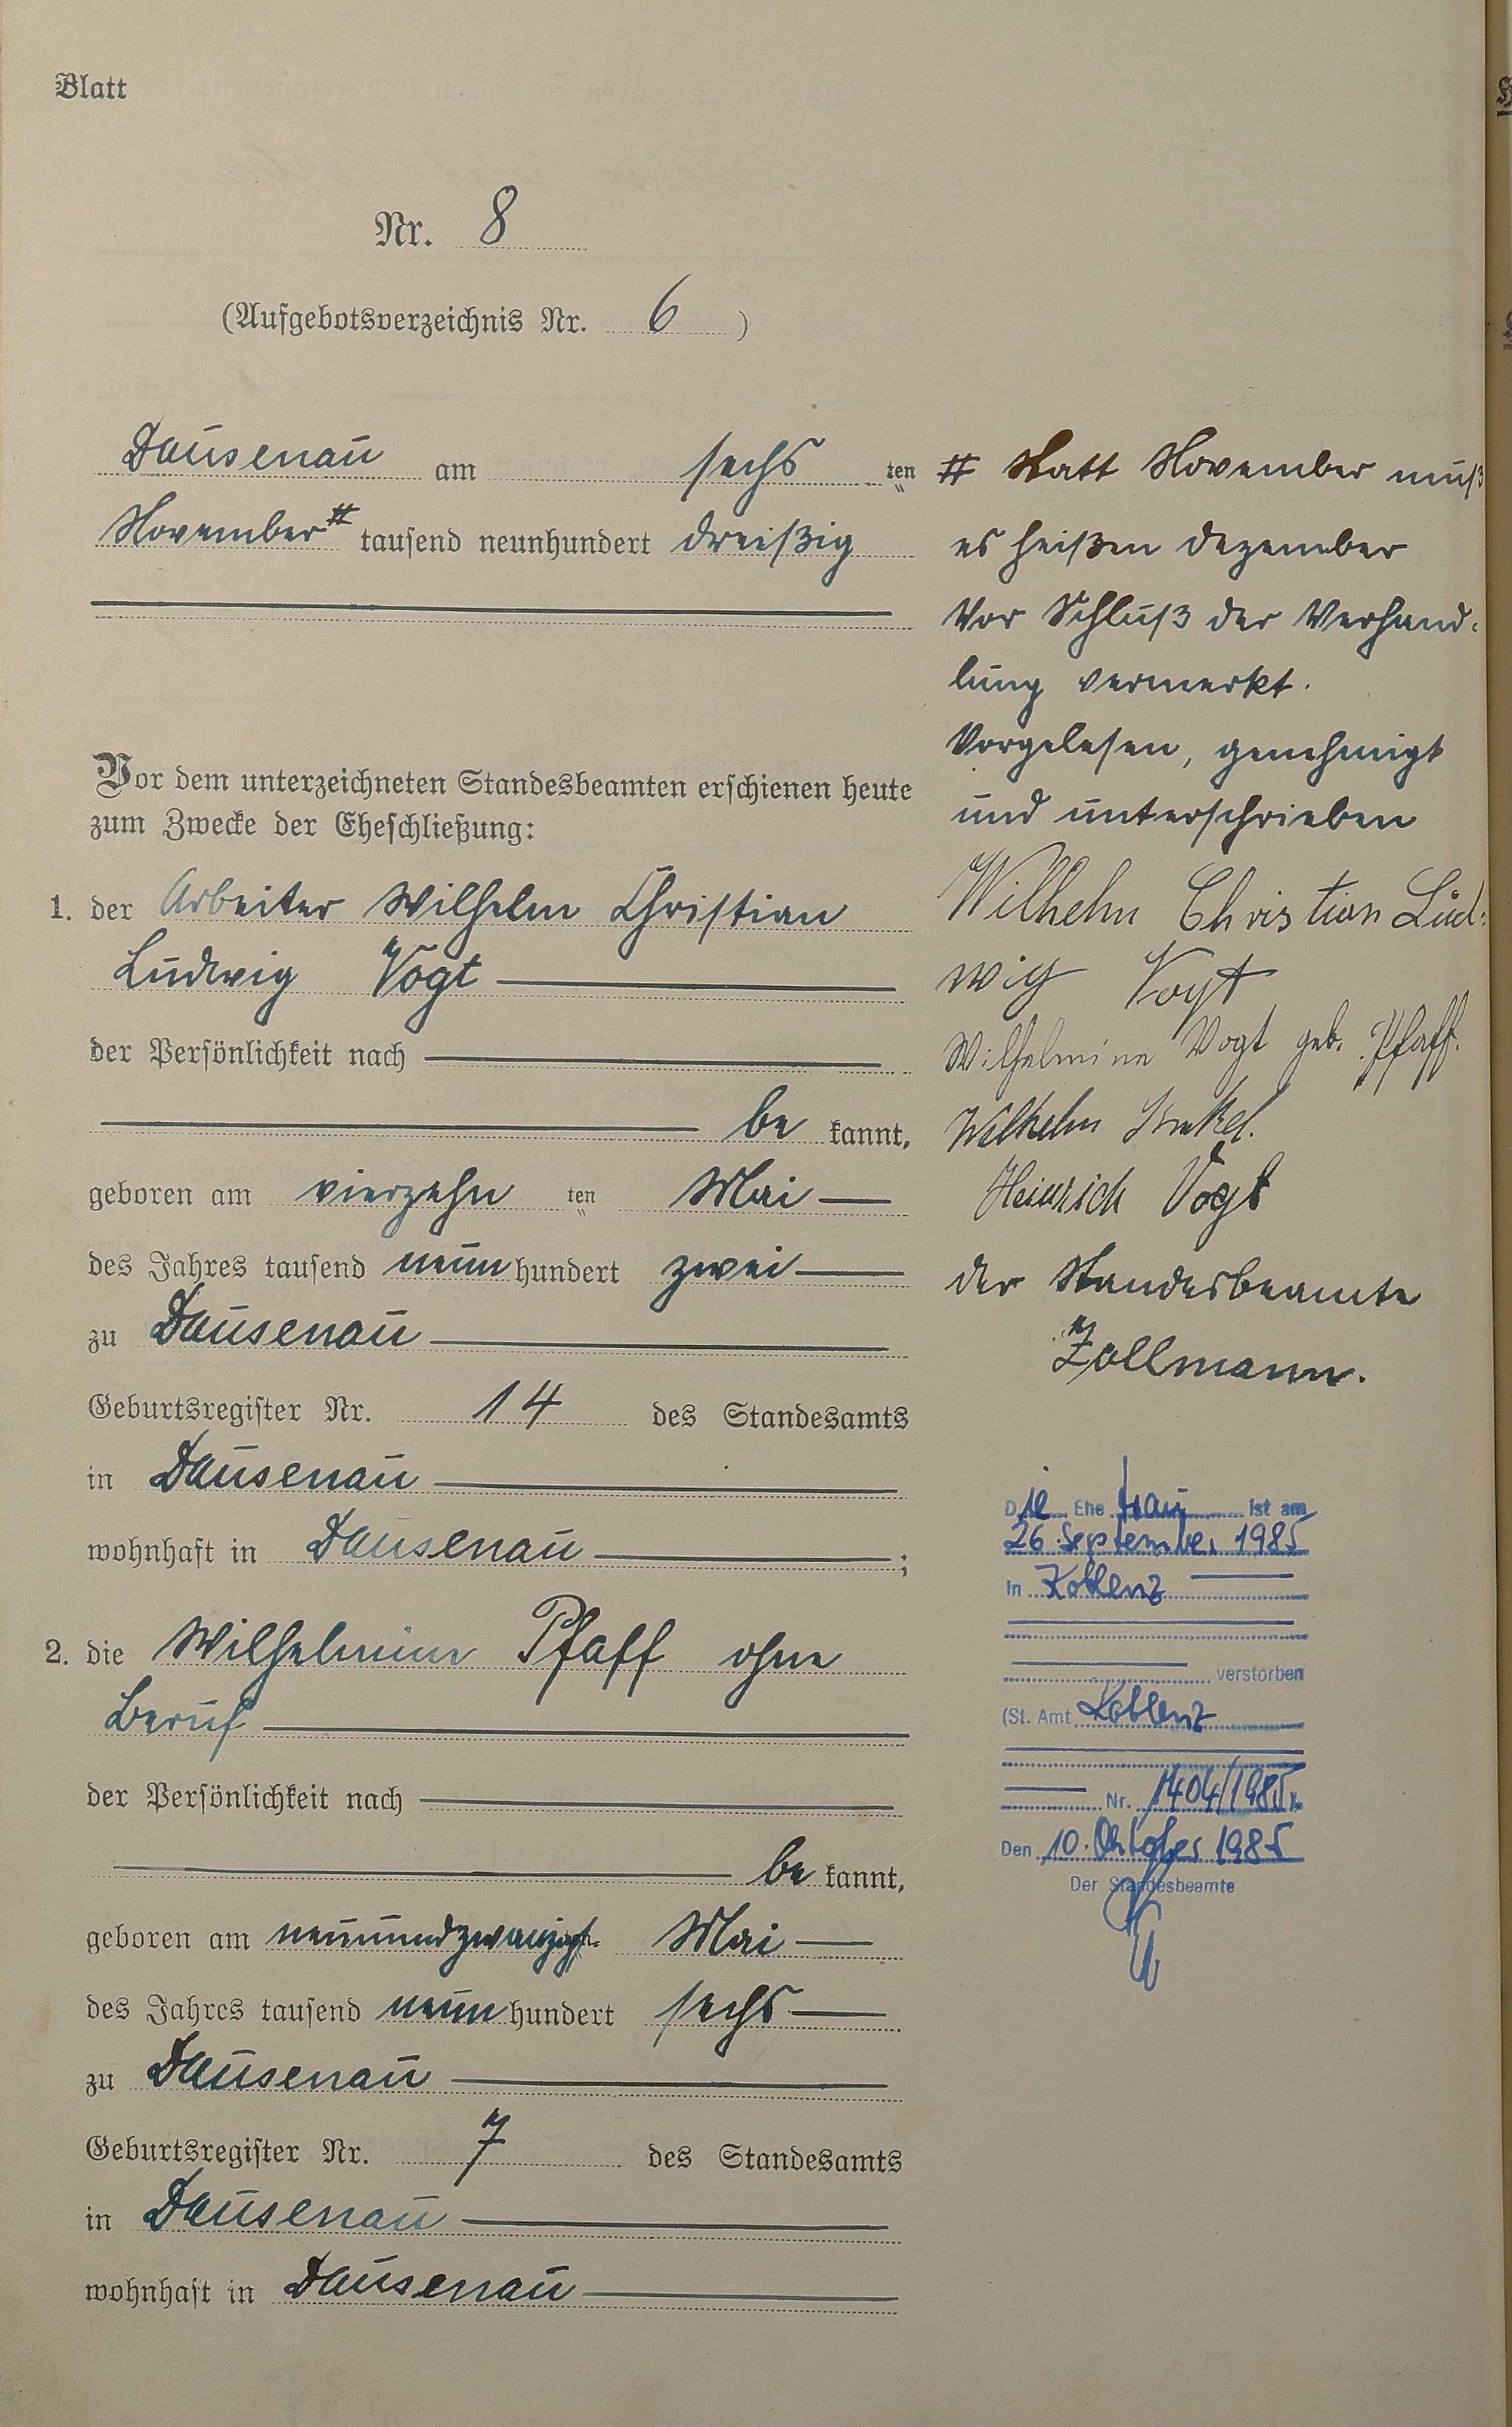 Blatt
Nr. 8
(Aufgebotsverzeichnis Nr. 6 )
Dausenau am sechs ten
November # tausend neunhundert dreißig
Vor dem unterzeichneten Standesbeamten erschienen heute
zum Zwecke der Eheschließung:
1. der Arbeiter Wilhelm Christian
Ludwig Vogt
der Persönlichkeit nach
be kannt,
geboren am vierzehn ten Mai
des Jahres tausend neun hundert zwei
zu Dausenau
Geburtsregister Nr. 14 des Standesamts
in Dausenau
wohnhaft in Dausenau ;
2. die Wilhelmine Pfaff ohne
Beruf
der Persönlichkeit nach
be kannt,
geboren am neunundzwanzigst. Mai
des Jahres tausend neun hundert sechs
zu Dausenau
Geburtsregister Nr. 7 des Standesamts
in Dausenau
wohnhaft in Dausenau
# Statt November muß
es heißen Dezember
Vor Schluß der Verhand-
lung vermerkt.
Vorgelesen, genehmigt
und unterschrieben
Wilhelm Christian Lud-
wig Vogt
Wilhelmine Vogt geb. Pfaff.
Wilhelm
Heinrich Vogt
Der Standesbeamte
Zollmann.
Die Ehefrau ist am
26. September 1985
in Koblenz
verstorben
(St. Amt Koblenz
Nr. 1404/1985).
Den 10. Oktober 1985
Der Standesbeamte